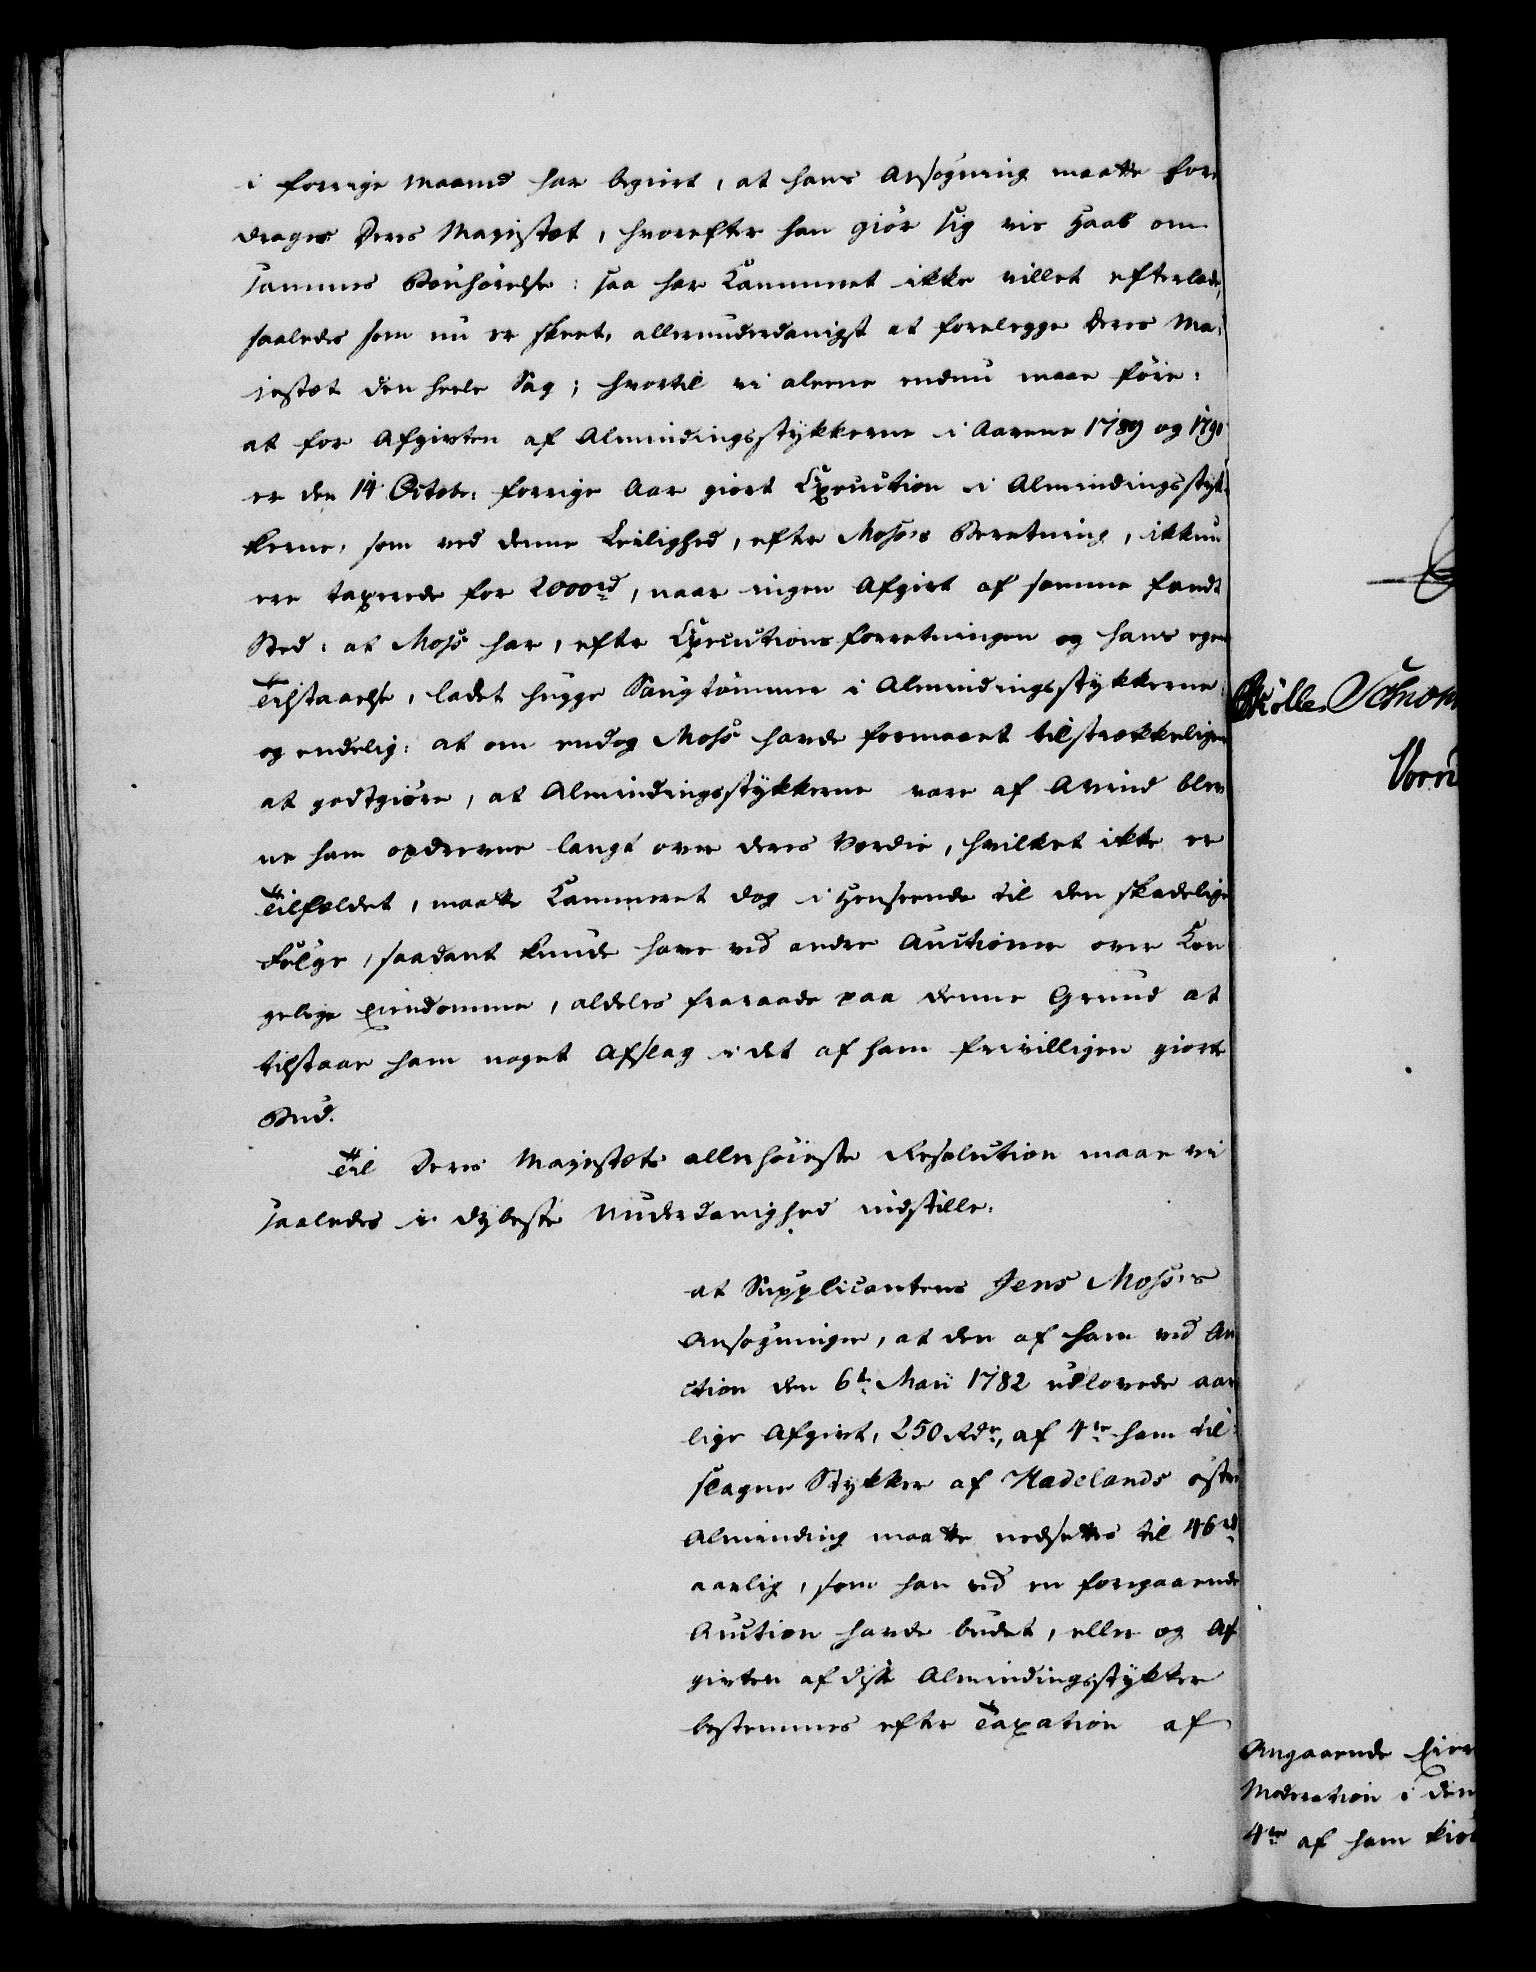 i forrige Maaned har begiert, at hans Ansøgning maatte fore
drages Deres Majestæt, hvorefter han giør sig vis Haab om
sammes Bønhørelse: saa har Kammeret ikke villet efterlade,
saaledes som nu er skeet, allerunderdanigst at forelegge Deres Ma-
jestæt den heele Sag; hvortil vi alene endnu maae føie:
at for Afgivten af Almindingsstykkerne i Aarene 1789 og 1790
er den 14 Octobr: forrige Aar giort Execution i Almindingsstyk-
kerne, som ved denne Leilighed, efter Moses Beretning, ikkun
ere taxerede for 2000 rd, naar ingen Afgivt af samme fandt
Sted: at Moss har, efter Executionsforretningen og hans egen
Tilstaaelse, ladet hugge Saugtømmer i Almindingsstykkerne:
og endelig: at om endog Moss havde formaaet tilstrækkeligen
at godtgiøre, at Almindingsstykkerne vare af Avind blev
ne ham opdrevne langt over deres Værdie, hvilket ikke er
Tilfældet, maatte Kammeret dog i Henseende til den skadelige
Følge, saadant kunde have ved andre Auctioner over Kon
gelige Eiendomme, aldeles fraraade paa denne Grund at
tilstaae ham noget Afslag i det af ham frivilligen giorte
Bud.
Til Deres Majestæts allerhøieste Resolution maae vi
saaledes i dybeste Underdanighed indstille:
at Supplicanten Jens Moses
Ansøgninger, at den af ham ved Au
ction den 6te Maii 1782 udlovede aar
lige Afgivt, 250 Rdr, af 4re ham til-
slagne Stykker af Hadelands østre
Alminding maatte nedsættes til 46 rd
aarlig, som han ved en foregaaende
Auction havde budet, eller og Af
givten af disse Almindingsstykker
bestemmes efter Taxation af
Angaaende Eier
Moderation i den
4re af ham kiøb